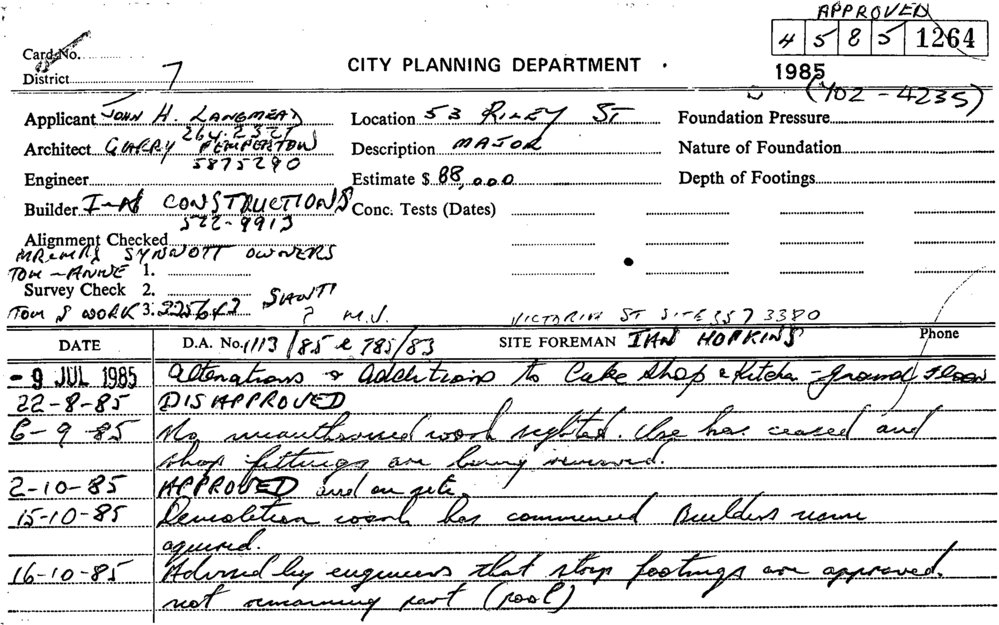 APPROVED
Card No.
4 5 8 5 1264
District 7
CITY PLANNING DEPARTMENT
1985
(402 - 4235)
Applicant JOHN H. LANGMEAD
Location 53 RILEY ST
Foundation Pressure
264.2321
Architect GARRY PEMBERTON
Description MAJOR
Nature of Foundation
5875290
Engineer
Estimate $ 88,000
Depth of Footings
Builder CONSTRUCTIONS
Conc. Tests (Dates)
522-9913
Alignment Checked
MR & MRS SYNNOTT OWNERS
TOM - ANNE 1.
Survey Check 2.
TOM S WORK 3.
? M.J.
VICTORIA ST SITE 357 3380
DATE
D.A. No. 1113/85 & 785/83
SITE FOREMAN IAN HOPKINS
Phone
- 9 JUL 1985 Alterations & Additions to Cake Shop & Kitchen - ground floor
22-8-85 DISAPPROVED
6-9-85 No unauthorised work sighted. Use has ceased and
shop fittings are being removed.
2-10-85 APPROVED and on site
15-10-85 Demolition work has commenced Builders name
required.
16-10-85 Advised by engineers that strip footings are approved,
not remaining part (pool)